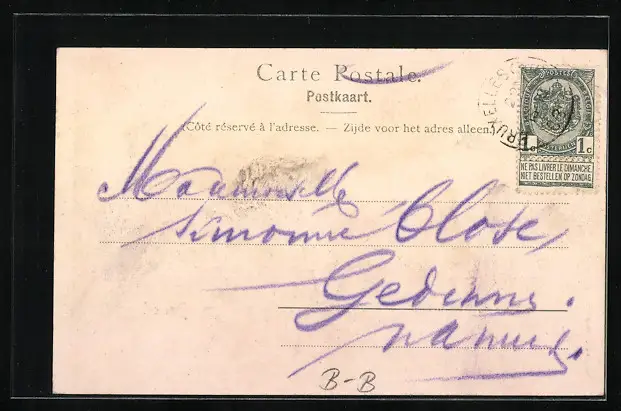 Carte Postale.
Postkaart.
(Côté réservé à l'adresse. — Zijde voor het adres alleen.)
BRUXELLES
POSTES
1c 1c
NE PAS LIVRER LE DIMANCHE
NIET BESTELLEN OP ZONDAG
Mademoiselle
Simonne Close,
Gedinne.
Namur.
B-B